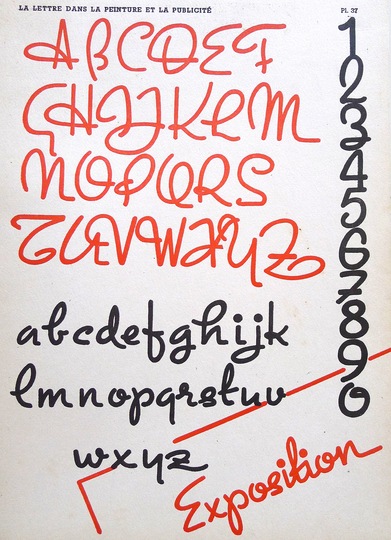 LA LETTRE DANS LA PEINTURE ET LA PUBLICITÉ
PL. 37
ABCDEF
GHIJKLM
NOPQRS
TUVWXYZ
1
2
3
4
5
6
7
8
9
0
abcdefghijk
lmnopqrstuv
wxyz
Exposition